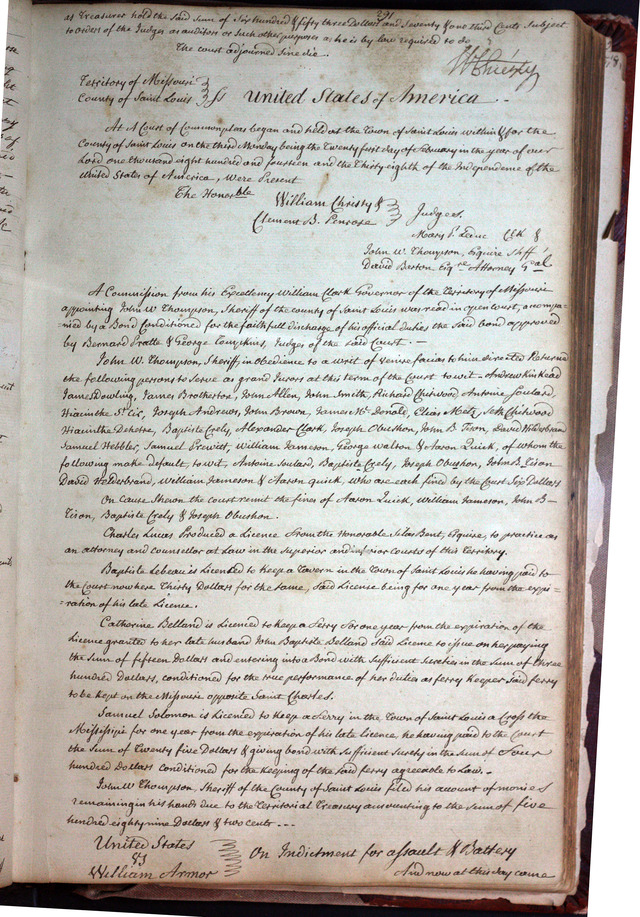 291
as Treasurer hold the Said Sum of Six hundred & fifty three Dollars and Seventy & one third Cents Subject
to orders of the Judges as auditors or Such other purposes as he is by law required to do
The court adjourned Sine die.
Wm Christy
Territory of Missouri
County of Saint Louis } Ss United States of America
At A Court of Common pleas began and held at the Town of Saint Louis within & for the
County of Saint Louis on the third Monday being the Twenty first day of February in the year of our
Lord one thousand eight hundred and fourteen and the Thirty eighth of the Independence of the
United States of America, Were Present
The Honorble William Christy &
Clement B. Penrose } Judges.
Mary P. Leduc Clk &
John W. Thompson, Esquire Shff
David Barton Esqre Attorney Geal
A Commission from his Excellency William Clark Governor of the Territory of Missouri
appointing John W Thompson, Sheriff of the county of Saint Louis was read in open court, accompa=
=nied by a Bond Conditioned for the faithfull discharge of his official duties the Said bond approved
by Bernard Pratte & George Tompkins, Judges of the Said Court. —
John W. Thompson, Sheriff, in obedience to a writ of venire facias to him directed Returned
the following persons to Serve as grand Jurors at this term of the Court to wit - Andrew Kinkead
James Dowling, James Brotherton, John Allen, John Smith, Richard Chitwood Antoine Soulard,
Hiacinthe St Cir, Joseph Andrews, John Brown, James McDonald, Elias Metz, Seth Chitwood
Hiacinthe Dehetre, Baptiste Crely, Alexander Clark, Joseph Obushon, John B Tison, David Hilderbran
Samuel Hebbler, Samuel Prewitt, William Jameson, George Walton & Aaron Quick, of whom the
following make default, to wit, Antoine Soulard, Baptiste Crely, Joseph Obushon, John B. Tison
David Helderbrand, William Jameson & Aaron quick, who are each fined by the Court Six Dollars
On cause Shewn the Court remit the fines of Aaron Quick, William Jameson, John B—
Tison, Baptiste Crely & Joseph Obushon.
Charles Lucas Produced a Licence from the Honorable Silas Bent, Esquire, to practice as
an attorney and counsellor at Law in the Superior and inferior Courts of this Territory.
Baptiste Lebeau is Licenced to Keep a Tavern in the Town of Saint Louis he having paid to
the Court now here Thirty Dollars for the same, Said License being for one year from the expi=
=ration of his late Licence.
Catherine Belland is Licenced to keep a Ferry for one year from the expiration of the
Licence granted to her late husband John Baptiste Belland Said Licence to issue on her paying
the Sum of fifteen Dollars and entering into a Bond with Sufficient Sureties in the Sum of three
hundred Dollars, conditioned for the true performance of her duties as ferry Keeper Said ferry
to be kept on the Missourie opposite Saint Charles.
Samuel Solomon is Licenced to Keep a Ferry in the Town of Saint Louis a Cross the
Mississippi for one year from the expiration of his late Licence, he having paid to the Court
the Sum of Twenty five Dollars & giving bond with Sufficient Surety in the Sum of Four
hundred Dollars conditioned for the keeping of the Said ferry agreeable to Law. -
John W. Thompson, Sheriff of the County of Saint Louis filed his account of monies
remaining in his hands due to the Territorial Treasury amounting to the Sum of five
hundred eighty nine Dollars & two cents ---
United States
vs
William Armor } On Indictment for assault & Battery
And now at this day came